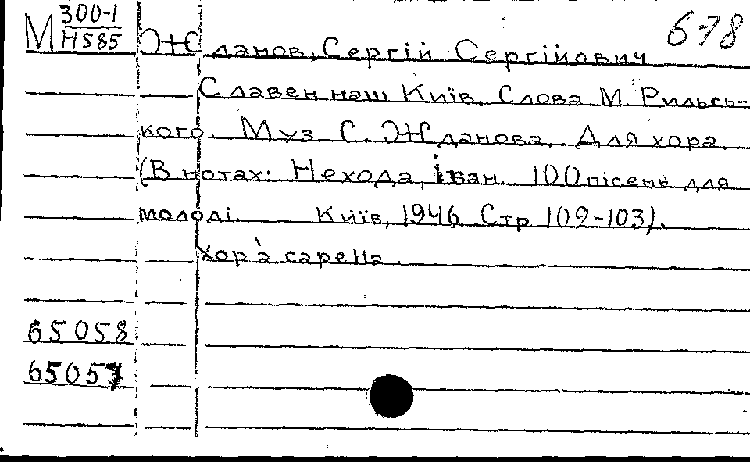 М 300-1
Н585
678
Жданов, Сергій Сергійович
Славен наш Київ. Слова М. Рильсь-
кого. Муз. С. Жданова. Для хора.
(В нотах: Нехода, Іван. 100 пісень для
молоді. Київ, 1946. Стр. 102-103).
Хор а сарепа.
65058
65057